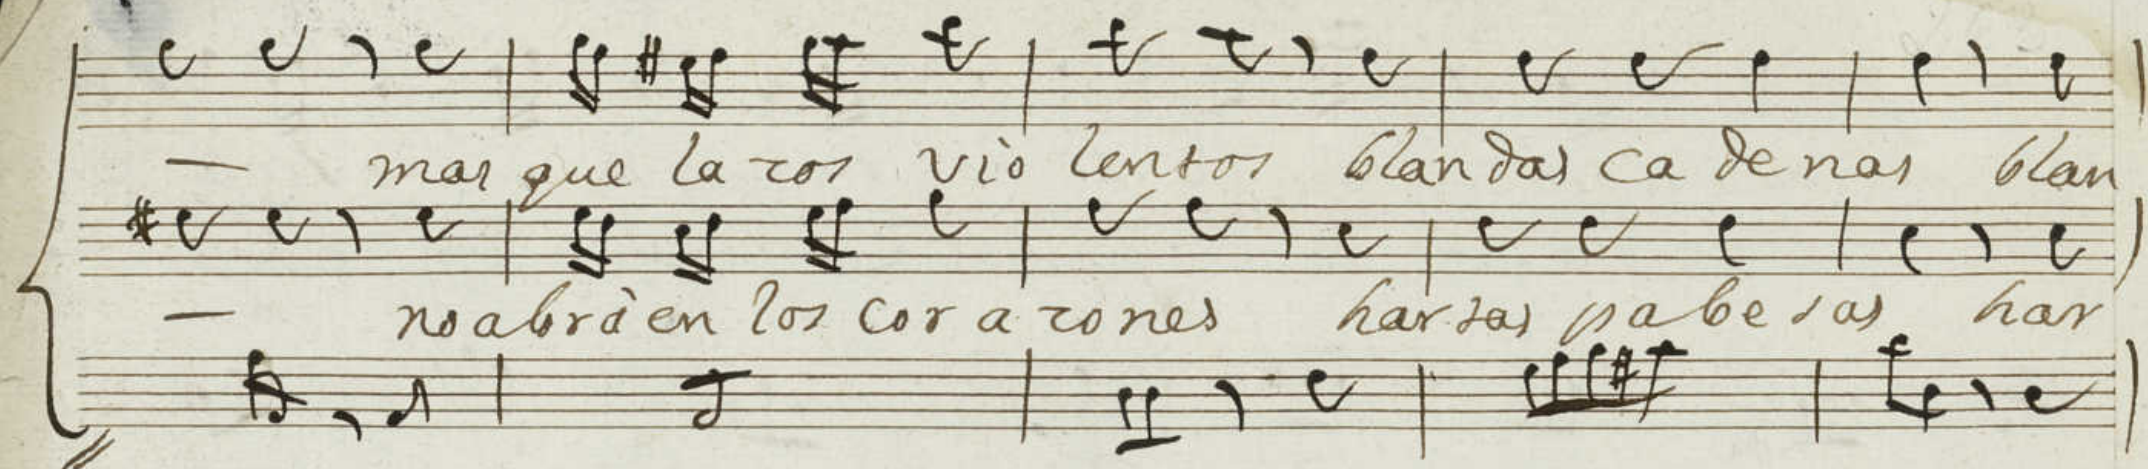 — mas que la zos vio lentos blandas ca denas blan
— no abrà en los cor a zones har tas pa be sas har